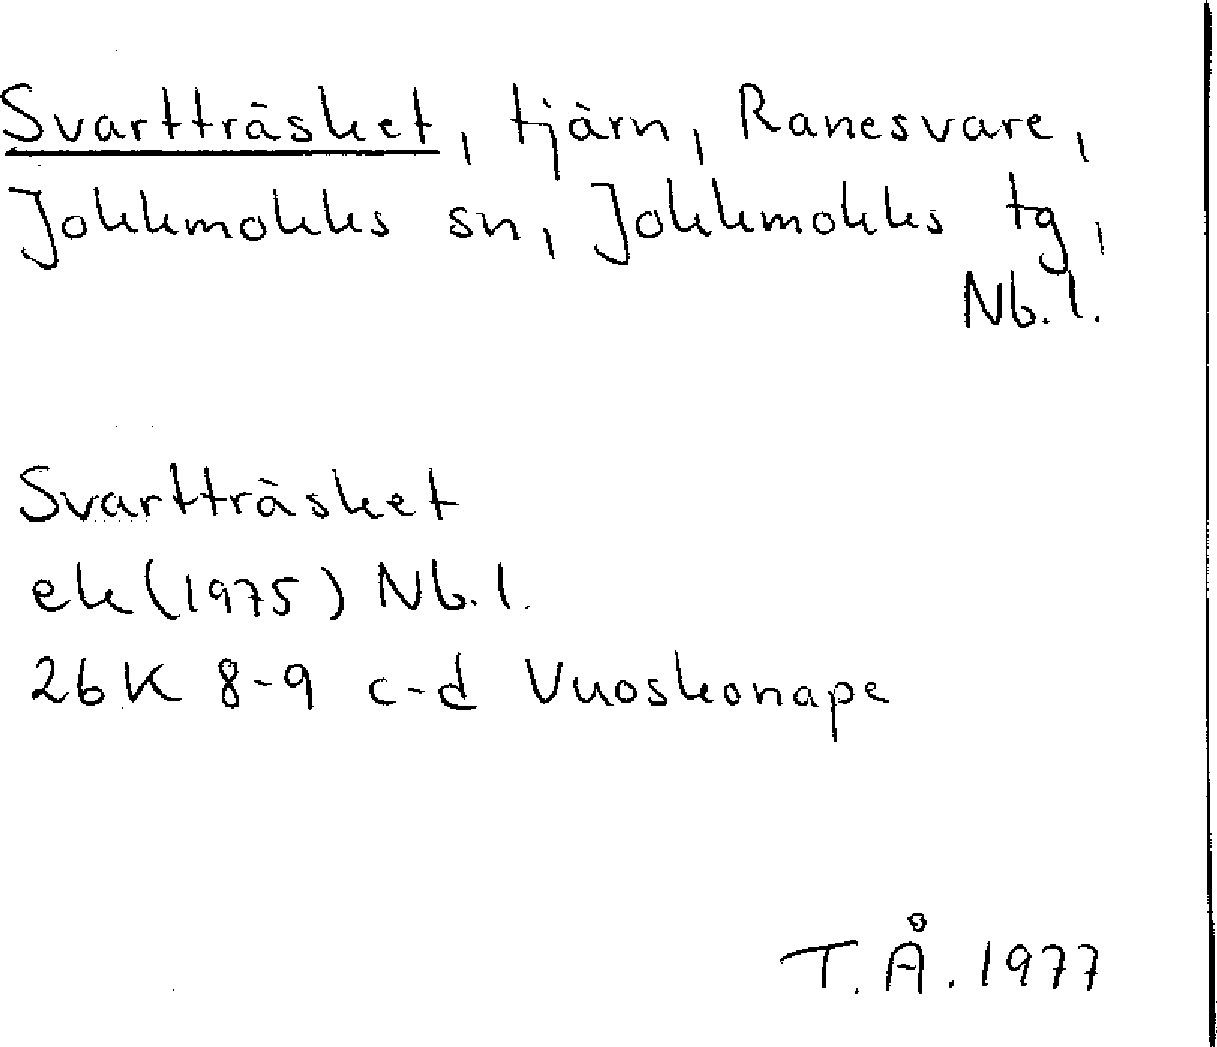 Svartträsket, tjärn, Ranesvare,
Jokkmokks sn, Jokkmokks tg,
Nb. l.
Svartträsket
ek (1975) Nb. l.
26K 8-9 c-d Vuoskonape
T. Å. 1977